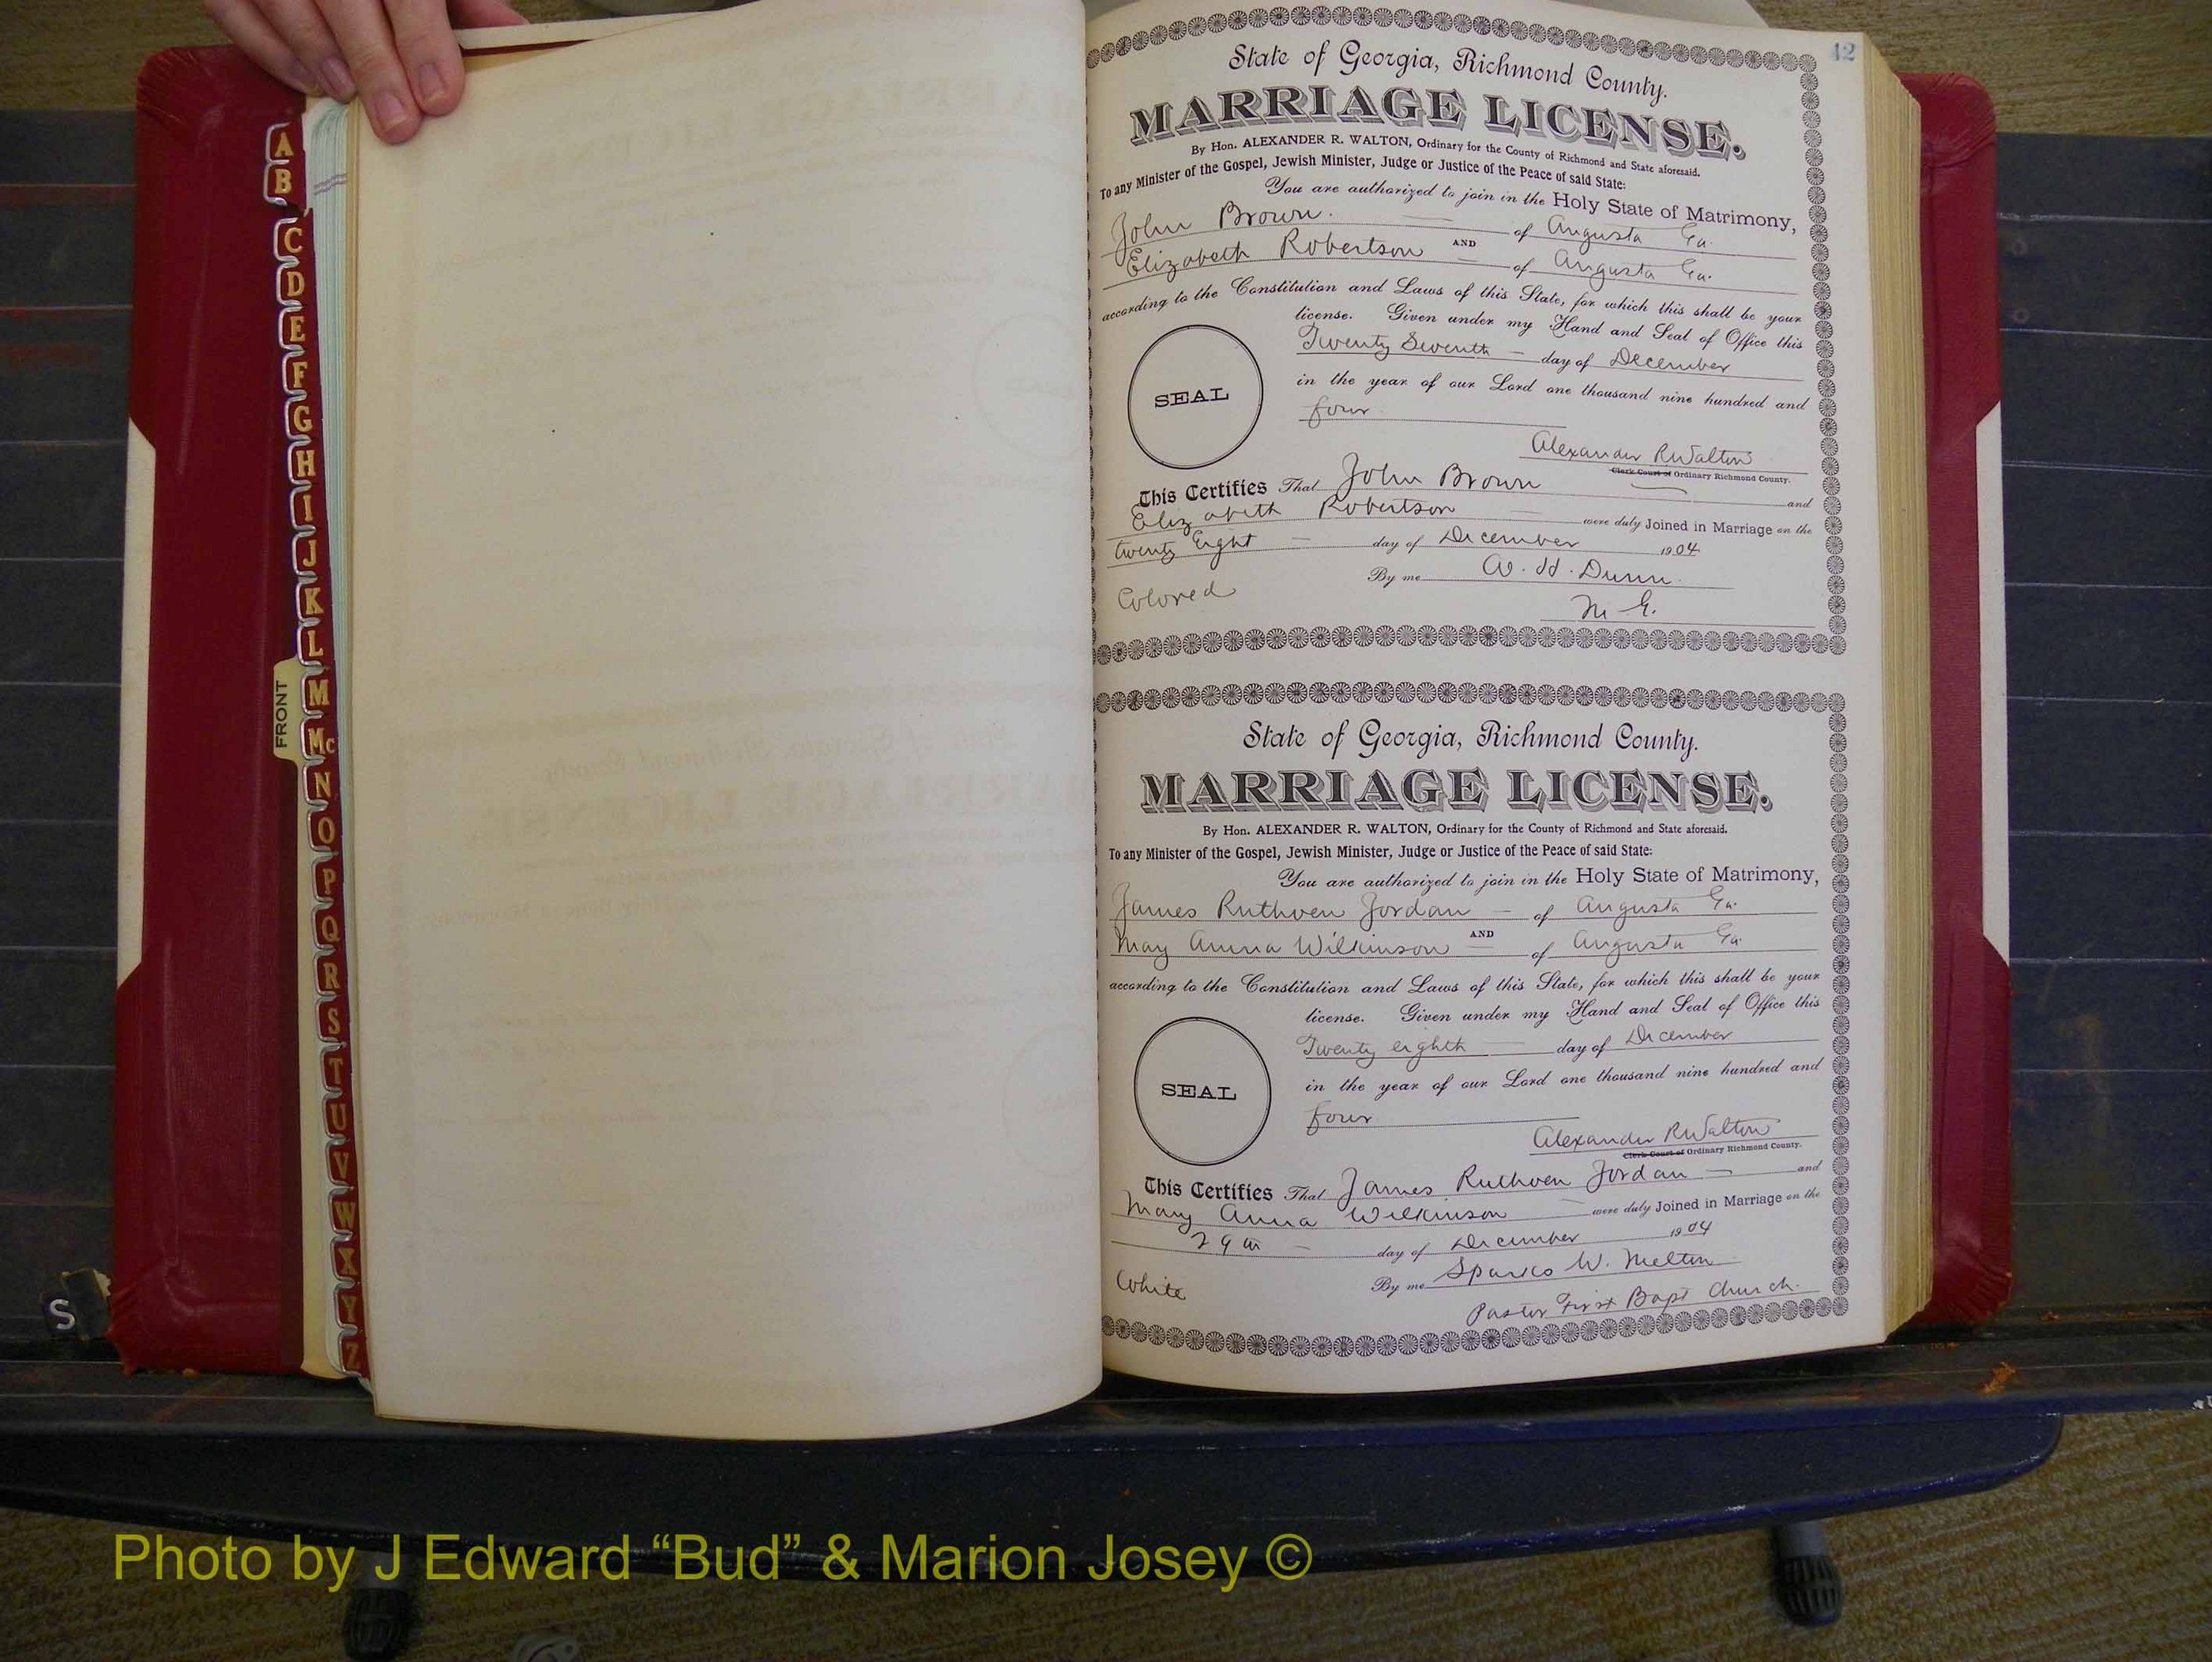 A
B
C
D
E
F
G
H
I
J
K
L
M
Mc
N
O
P
Q
R
S
T
U
V
W
X
Y
Z
FRONT
S
12
State of Georgia, Richmond County.
MARRIAGE LICENSE.
By Hon. ALEXANDER R. WALTON, Ordinary for the County of Richmond and State aforesaid.
To any Minister of the Gospel, Jewish Minister, Judge or Justice of the Peace of said State:
You are authorized to join in the Holy State of Matrimony,
John Brown. of Augusta Ga.
AND
Elizabeth Robertson of Augusta Ga.
according to the Constitution and Laws of this State, for which this shall be your
license. Given under my Hand and Seal of Office this
Twenty Seventh day of December
in the year of our Lord one thousand nine hundred and
four
SEAL
Alexander R Walton
Clerk Court of Ordinary Richmond County.
This Certifies That John Brown and
Elizabeth Robertson were duly Joined in Marriage on the
twenty Eight day of December 1904
By me W. H. Dunn.
Colored
M G.
State of Georgia, Richmond County.
MARRIAGE LICENSE.
By Hon. ALEXANDER R. WALTON, Ordinary for the County of Richmond and State aforesaid.
To any Minister of the Gospel, Jewish Minister, Judge or Justice of the Peace of said State:
You are authorized to join in the Holy State of Matrimony,
James Ruthven Jordan of Augusta Ga.
AND
Mary Anna Wilkinson of Augusta Ga.
according to the Constitution and Laws of this State, for which this shall be your
license. Given under my Hand and Seal of Office this
Twenty eighth day of December
in the year of our Lord one thousand nine hundred and
four
SEAL
Alexander R Walton
Clerk Court of Ordinary Richmond County.
This Certifies That James Ruthven Jordan and
Mary Anna Wilkinson were duly Joined in Marriage on the
29th day of December 1904
By me Sparks W. Melton
White
Pastor First Bapt Church.
Photo by J Edward “Bud” & Marion Josey ©